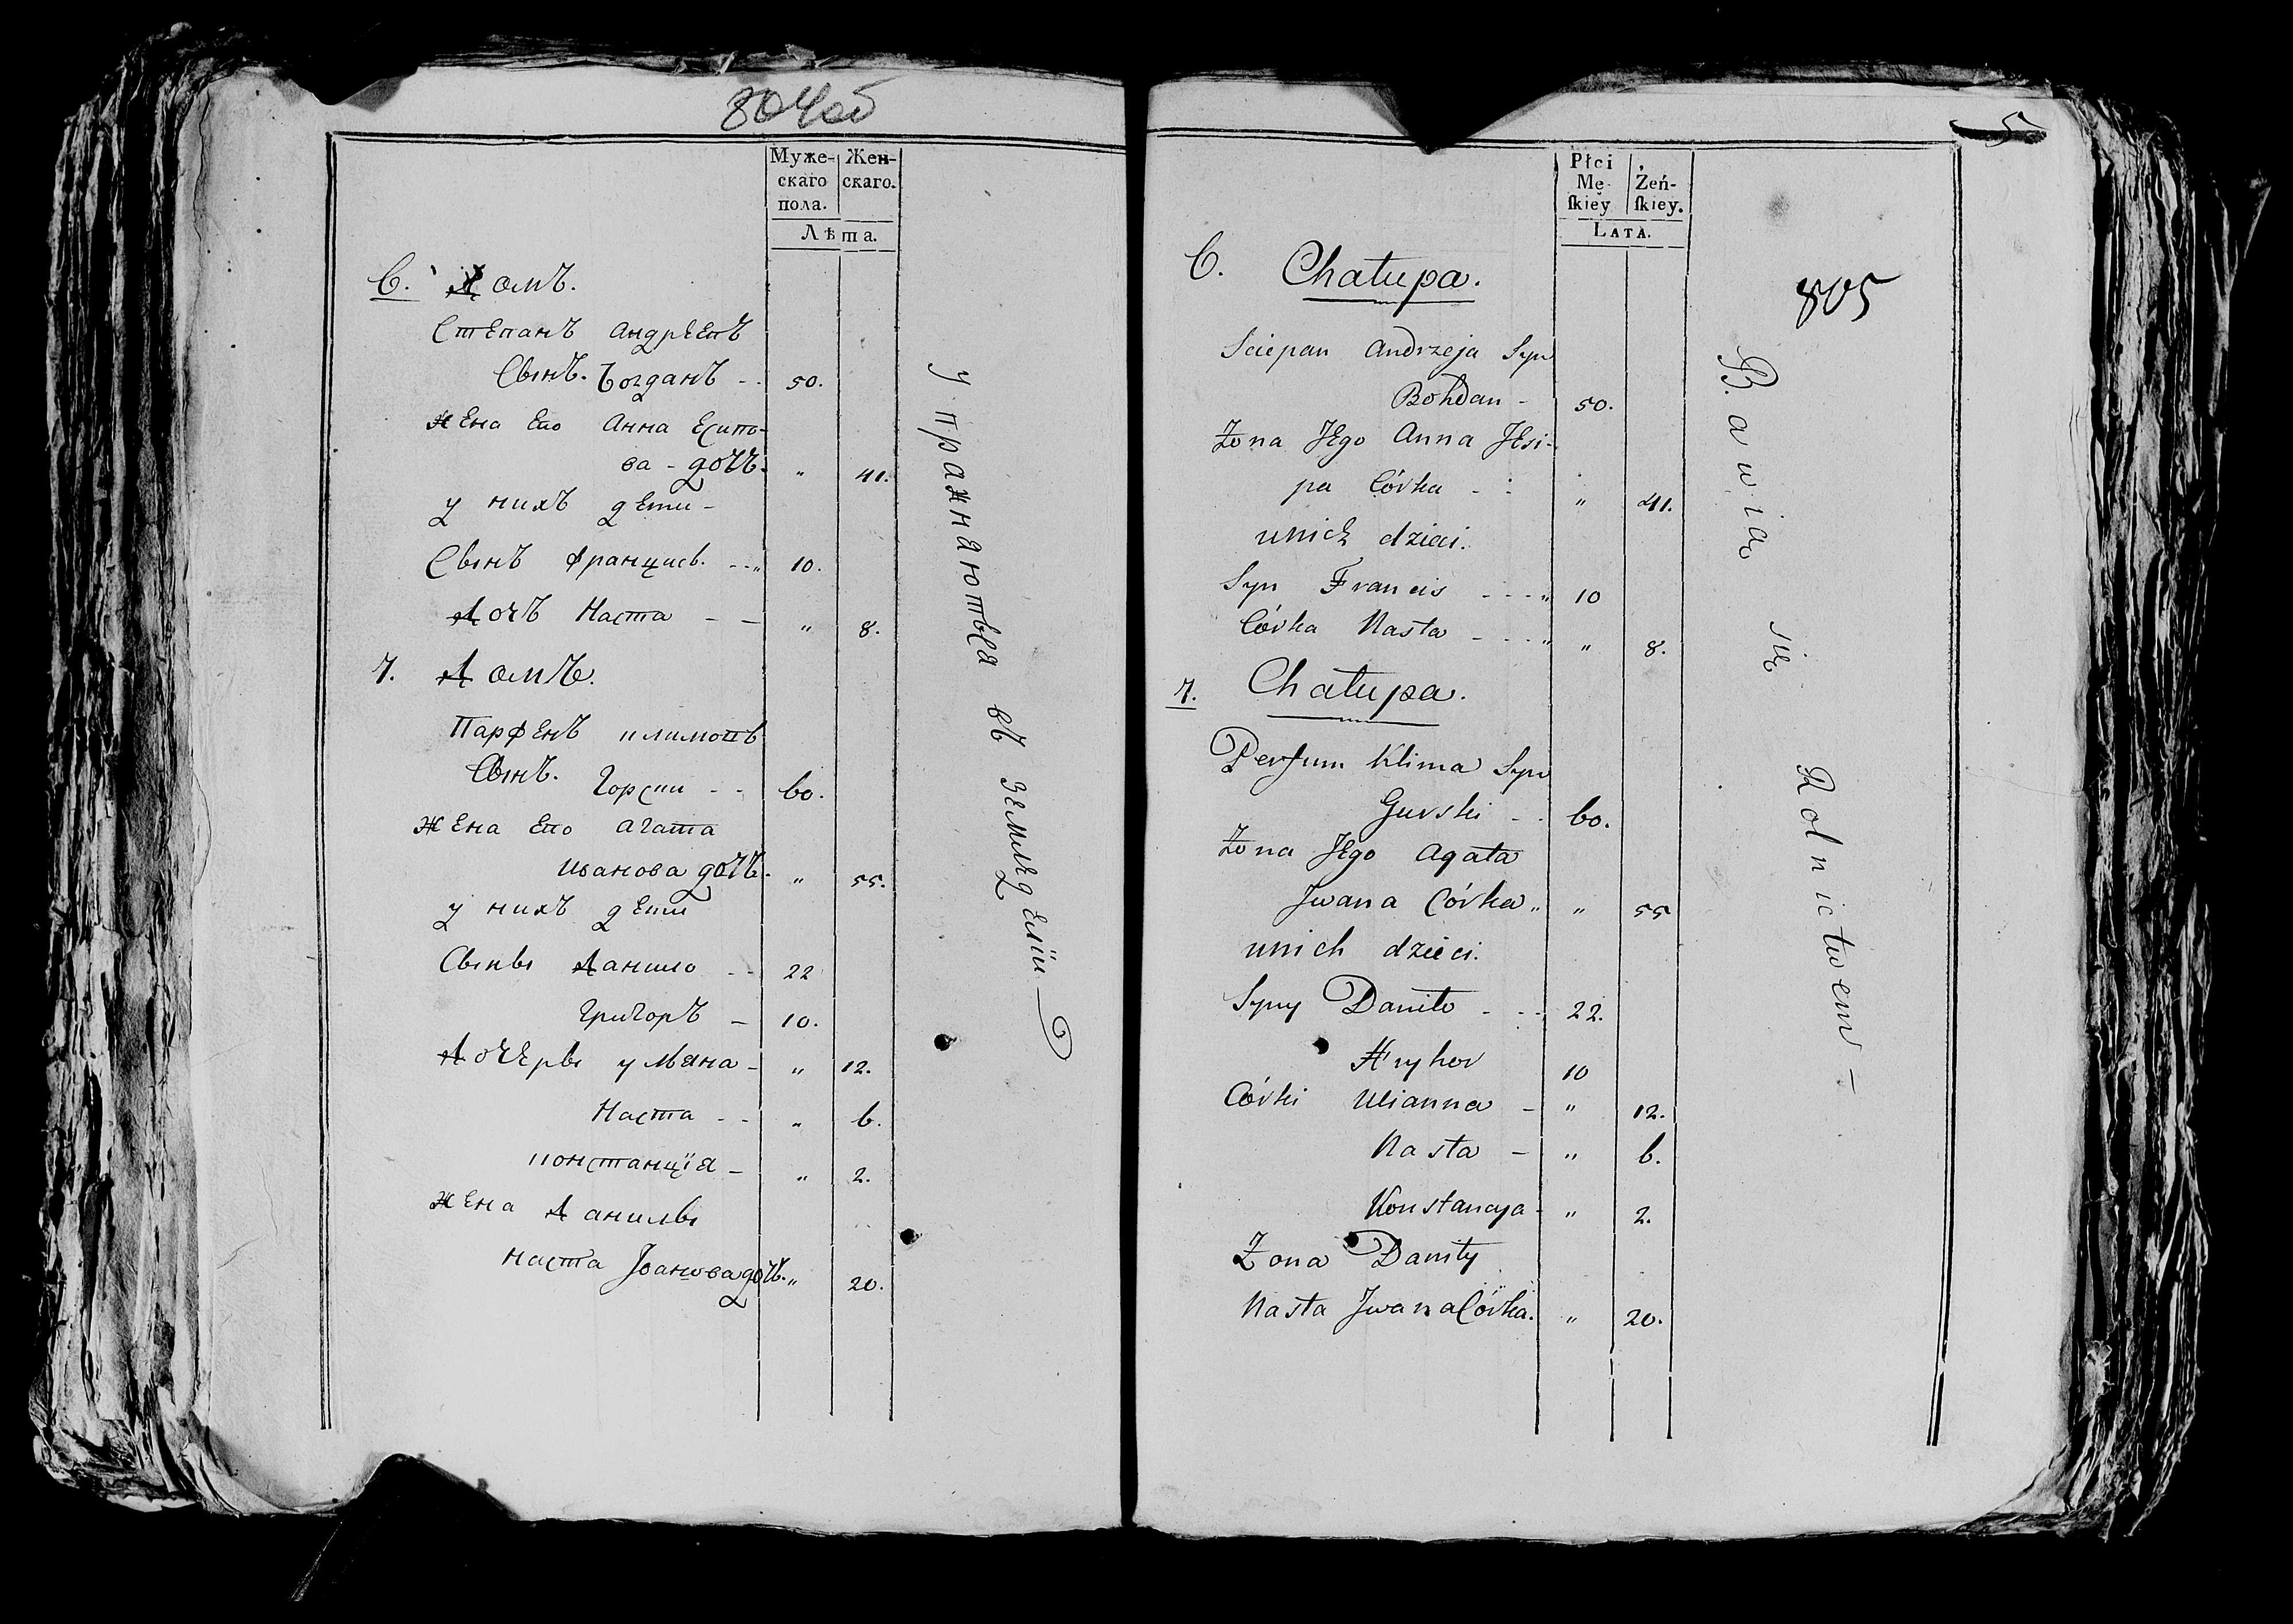 804об
Муже-
скаго
пола.
Жен-
скаго.
Лѣта.
6. Домъ.
Степанъ Андрѣевъ
Сынъ. Богданъ - - 50.
Жена его Анна Есипо-
ва - дочь. " 41.
у нихъ дети -
Сынъ Францисъ. - - " 10.
Дочъ Наста - - " 8.
7. Домъ.
Парфенъ климовъ
Сынъ. Горски - - 60.
Жена его агата
иванова дочъ. " 55.
у нихъ дети
Сыны Данило - - 22
Григоръ - 10.
Дочеры ульяна - " 12.
Наста - - " 6.
констанція - " 2.
Жена Данилы
наста Іванова дочъ. " 20.
упражняютьея въ земледелїи
5
Płci
Mę-
ſkiey
Żeń-
ſkiey.
Lata.
805
6. Chałupa.
Sciepan Andrzeja Syn
Bohdan - 50.
Żona Jego Anna Jesi-
pa Córka - " 41.
unich dzieci.
Syn Francis - - - " 10
Córka Nasta - - - " " 8.
7. Chałupa.
Perfum Klima Syn
Gurski - - 60.
Żona Jego Agata
Jwana Córka " " 55
unich dzieci.
Syny Daniło - - - 22.
Hryhor 10
Córki Ulianna - " 12.
Nasta - " 6.
Konstancya - " 2.
Żona Daniły
Nasta Jwana Córka. " 20.
Bawią się Rolnictwem -